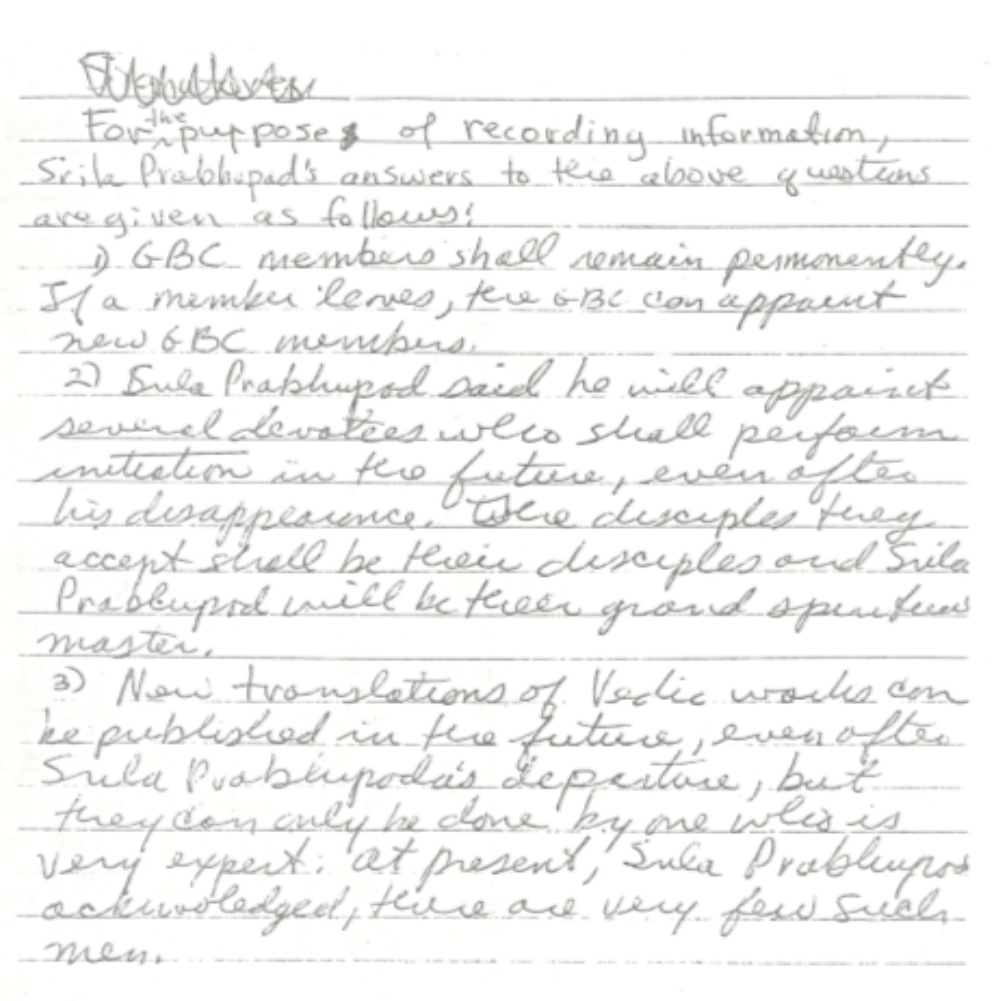 For the purpose of recording information,
Srila Prabhupad's answers to the above questions
are given as follows:
1) GBC members shall remain permanently.
If a member leaves, the GBC can appoint
new GBC members.
2) Srila Prabhupad said he will appoint
several devotees who shall perform
initiation in the future, even after
his disappearance. The disciples they
accept shall be their disciples and Srila
Prabhupad will be their grand spiritual
master.
3) New translations of Vedic works can
be published in the future, even after
Srila Prabhupada's departure, but
they can only be done by one who is
very expert. At present, Srila Prabhupad
acknowledged, there are very few such
men.